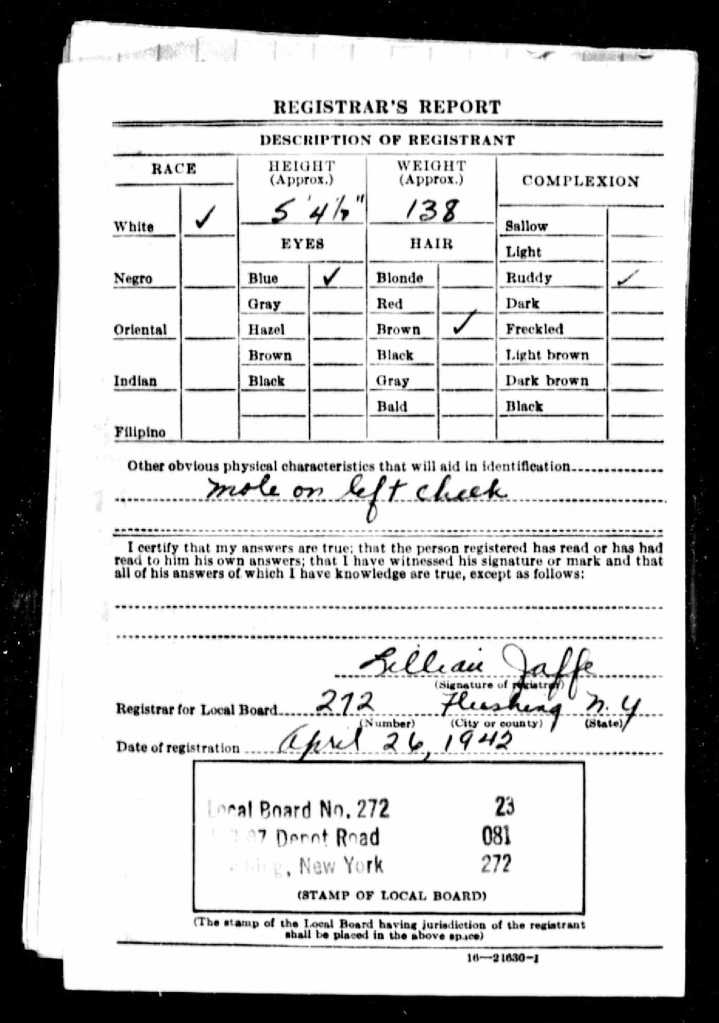 REGISTRAR'S REPORT
DESCRIPTION OF REGISTRANT
RACE
HEIGHT
(Approx.)
WEIGHT
(Approx.)
COMPLEXION
5' 4½"
138
White ✓
Sallow
EYES
HAIR
Light
Negro
Blue ✓
Blonde
Ruddy ✓
Gray
Red
Dark
Oriental
Hazel
Brown ✓
Freckled
Brown
Black
Light brown
Indian
Black
Gray
Dark brown
Bald
Black
Filipino
Other obvious physical characteristics that will aid in identification
mole on left cheek
I certify that my answers are true; that the person registered has read or has had
read to him his own answers; that I have witnessed his signature or mark and that
all of his answers of which I have knowledge are true, except as follows:
Lillian Jaffe
(Signature of registrar)
Registrar for Local Board 272 Flushing N.Y
(Number) (City or county) (State)
Date of registration April 26, 1942
Local Board No. 272 23
Depot Road 081
New York 272
(STAMP OF LOCAL BOARD)
(The stamp of the Local Board having jurisdiction of the registrant
shall be placed in the above space)
16—21630-1